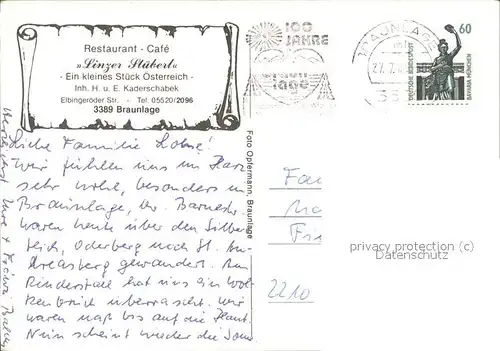 Restaurant - Café
»Linzer Stüberl«
- Ein kleines Stück Österreich -
Inh. H. u. E. Kaderschabek
Elbingeröder Str. - Tel. 05520/2096
3389 Braunlage
100
JAHRE
BRAUNLAGE
60
DEUTSCHE BUNDESPOST
BAVARIA MÜNCHEN
Foto Opfermann, Braunlage
Liebe Familie
Wir fühlen uns im Harz
sehr wohl, besonders in
Braunlage, wir
waren heute über den Silber
teich, Oderberg nach St. An-
dreasberg gewandert. Am
Rinderstall hat uns ein Wol-
kenbruch überrascht. Wir
waren naß bis auf die Haut.
Nun scheint wieder die Sonn
Herzlichst Ihre
Fa
Fri
2210
privacy protection (c)
Datenschutz